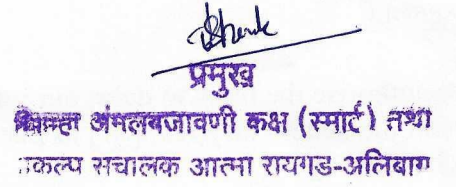 प्रमुख
अंमलबजावणी कक्ष (स्मार्ट) तथा
प्रकल्प संचालक आत्मा रायगड-अलिबाग